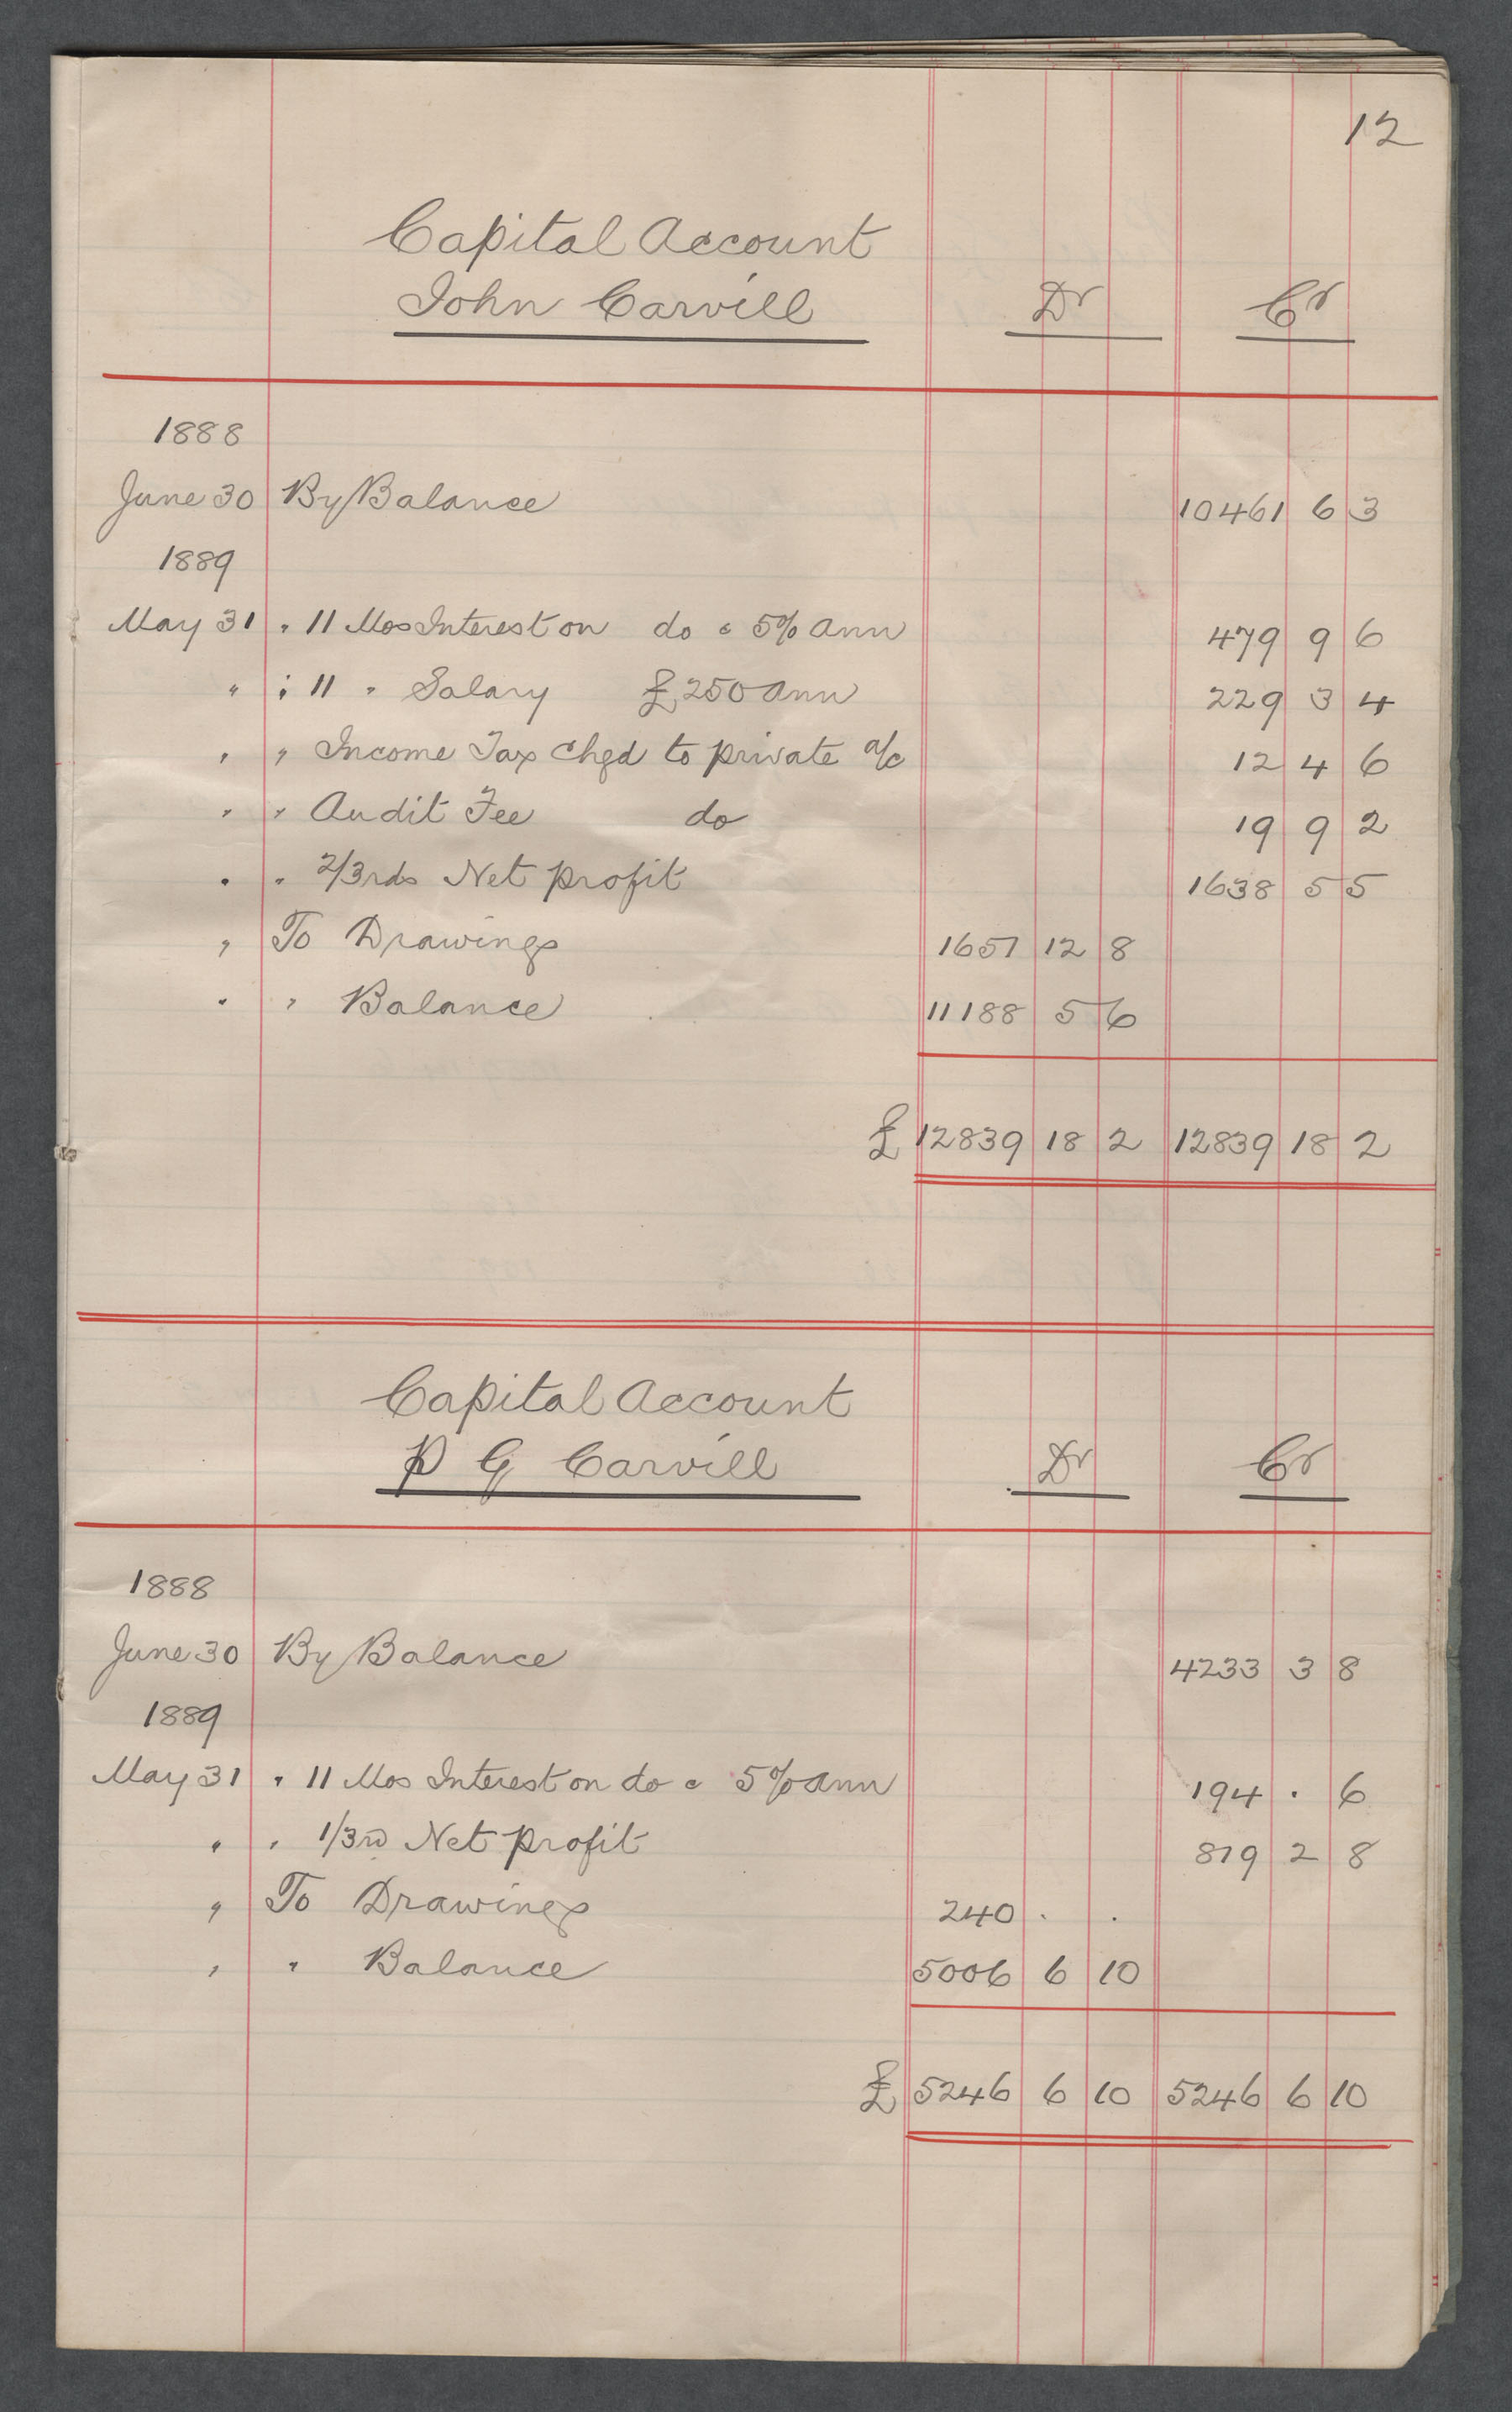 12
Capital Account
John Carvill Dr Cr
1888
June 30 By Balance 10461 6 3
1889
May 31 " 11 Mos Interest on do @ 5% Ann 479 9 6
" " 11 " Salary £250 Ann 229 3 4
" " Income Tax Chgd to private a/c 12 4 6
" " Audit Fee do 19 9 2
" " 2/3rds Net profit 1638 5 5
" To Drawings 1651 12 8
" " Balance 11188 5 6
£ 12839 18 2 12839 18 2
Capital Account
P G Carvill Dr Cr
1888
June 30 By Balance 4233 3 8
1889
May 31 " 11 Mos Interest on do @ 5% Ann 194 . 6
" " 1/3rd Net profit 819 2 8
" To Drawings 240 . .
" " Balance 5006 6 10
£ 5246 6 10 5246 6 10